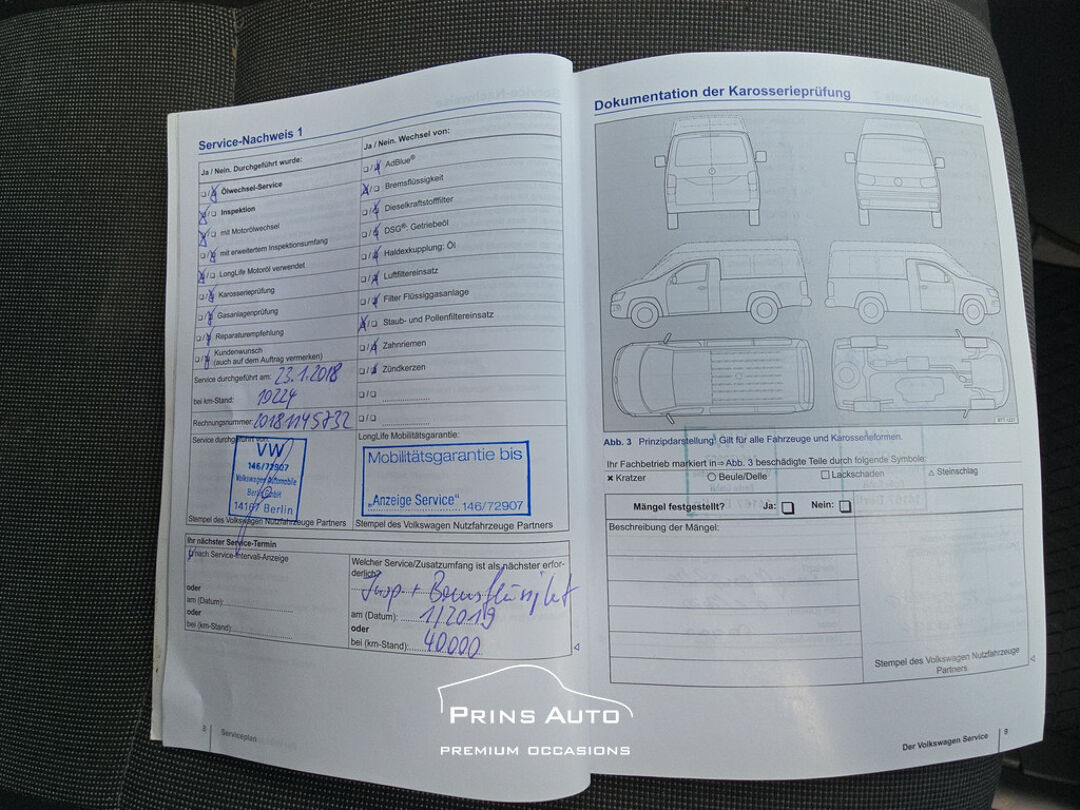 Service-Nachweis 1
Ja / Nein. Durchgeführt wurde:
Ölwechsel-Service
Inspektion
mit Motorölwechsel
mit erweitertem Inspektionsumfang
LongLife Motoröl verwendet
Karosserieprüfung
Gasanlagenprüfung
Reparaturempfehlung
Kundenwunsch
(auch auf dem Auftrag vermerken)
Service durchgeführt am: 23.1.2018
bei km-Stand: 10224
Rechnungsnummer: 20181145732
Service durchgeführt von:
VW
146/72907
Volkswagen Automobile
Berlin GmbH
14167 Berlin
Stempel des Volkswagen Nutzfahrzeuge Partners
Ja / Nein. Wechsel von:
AdBlue®
Bremsflüssigkeit
Dieselkraftstofffilter
DSG®: Getriebeöl
Haldexkupplung: Öl
Luftfiltereinsatz
Filter Flüssiggasanlage
Staub- und Pollenfiltereinsatz
Zahnriemen
Zündkerzen
LongLife Mobilitätsgarantie:
Mobilitätsgarantie bis
„Anzeige Service" 146/72907
Stempel des Volkswagen Nutzfahrzeuge Partners
Ihr nächster Service-Termin
nach Service-Intervall-Anzeige
oder
am (Datum):
oder
bei (km-Stand):
Welcher Service/Zusatzumfang ist als nächster erfor-
derlich?
Insp + Bremsflüssigkeit
am (Datum): 1/2019
oder
bei (km-Stand): 40.000
8 Serviceplan
Dokumentation der Karosserieprüfung
Abb. 3 Prinzipdarstellung: Gilt für alle Fahrzeuge und Karosserieformen.
Ihr Fachbetrieb markiert in ⇒ Abb. 3 beschädigte Teile durch folgende Symbole:
Kratzer Beule/Delle Lackschaden Steinschlag
Mängel festgestellt? Ja: Nein:
Beschreibung der Mängel:
Stempel des Volkswagen Nutzfahrzeuge
Partners
Der Volkswagen Service 9
PRINS AUTO
PREMIUM OCCASIONS